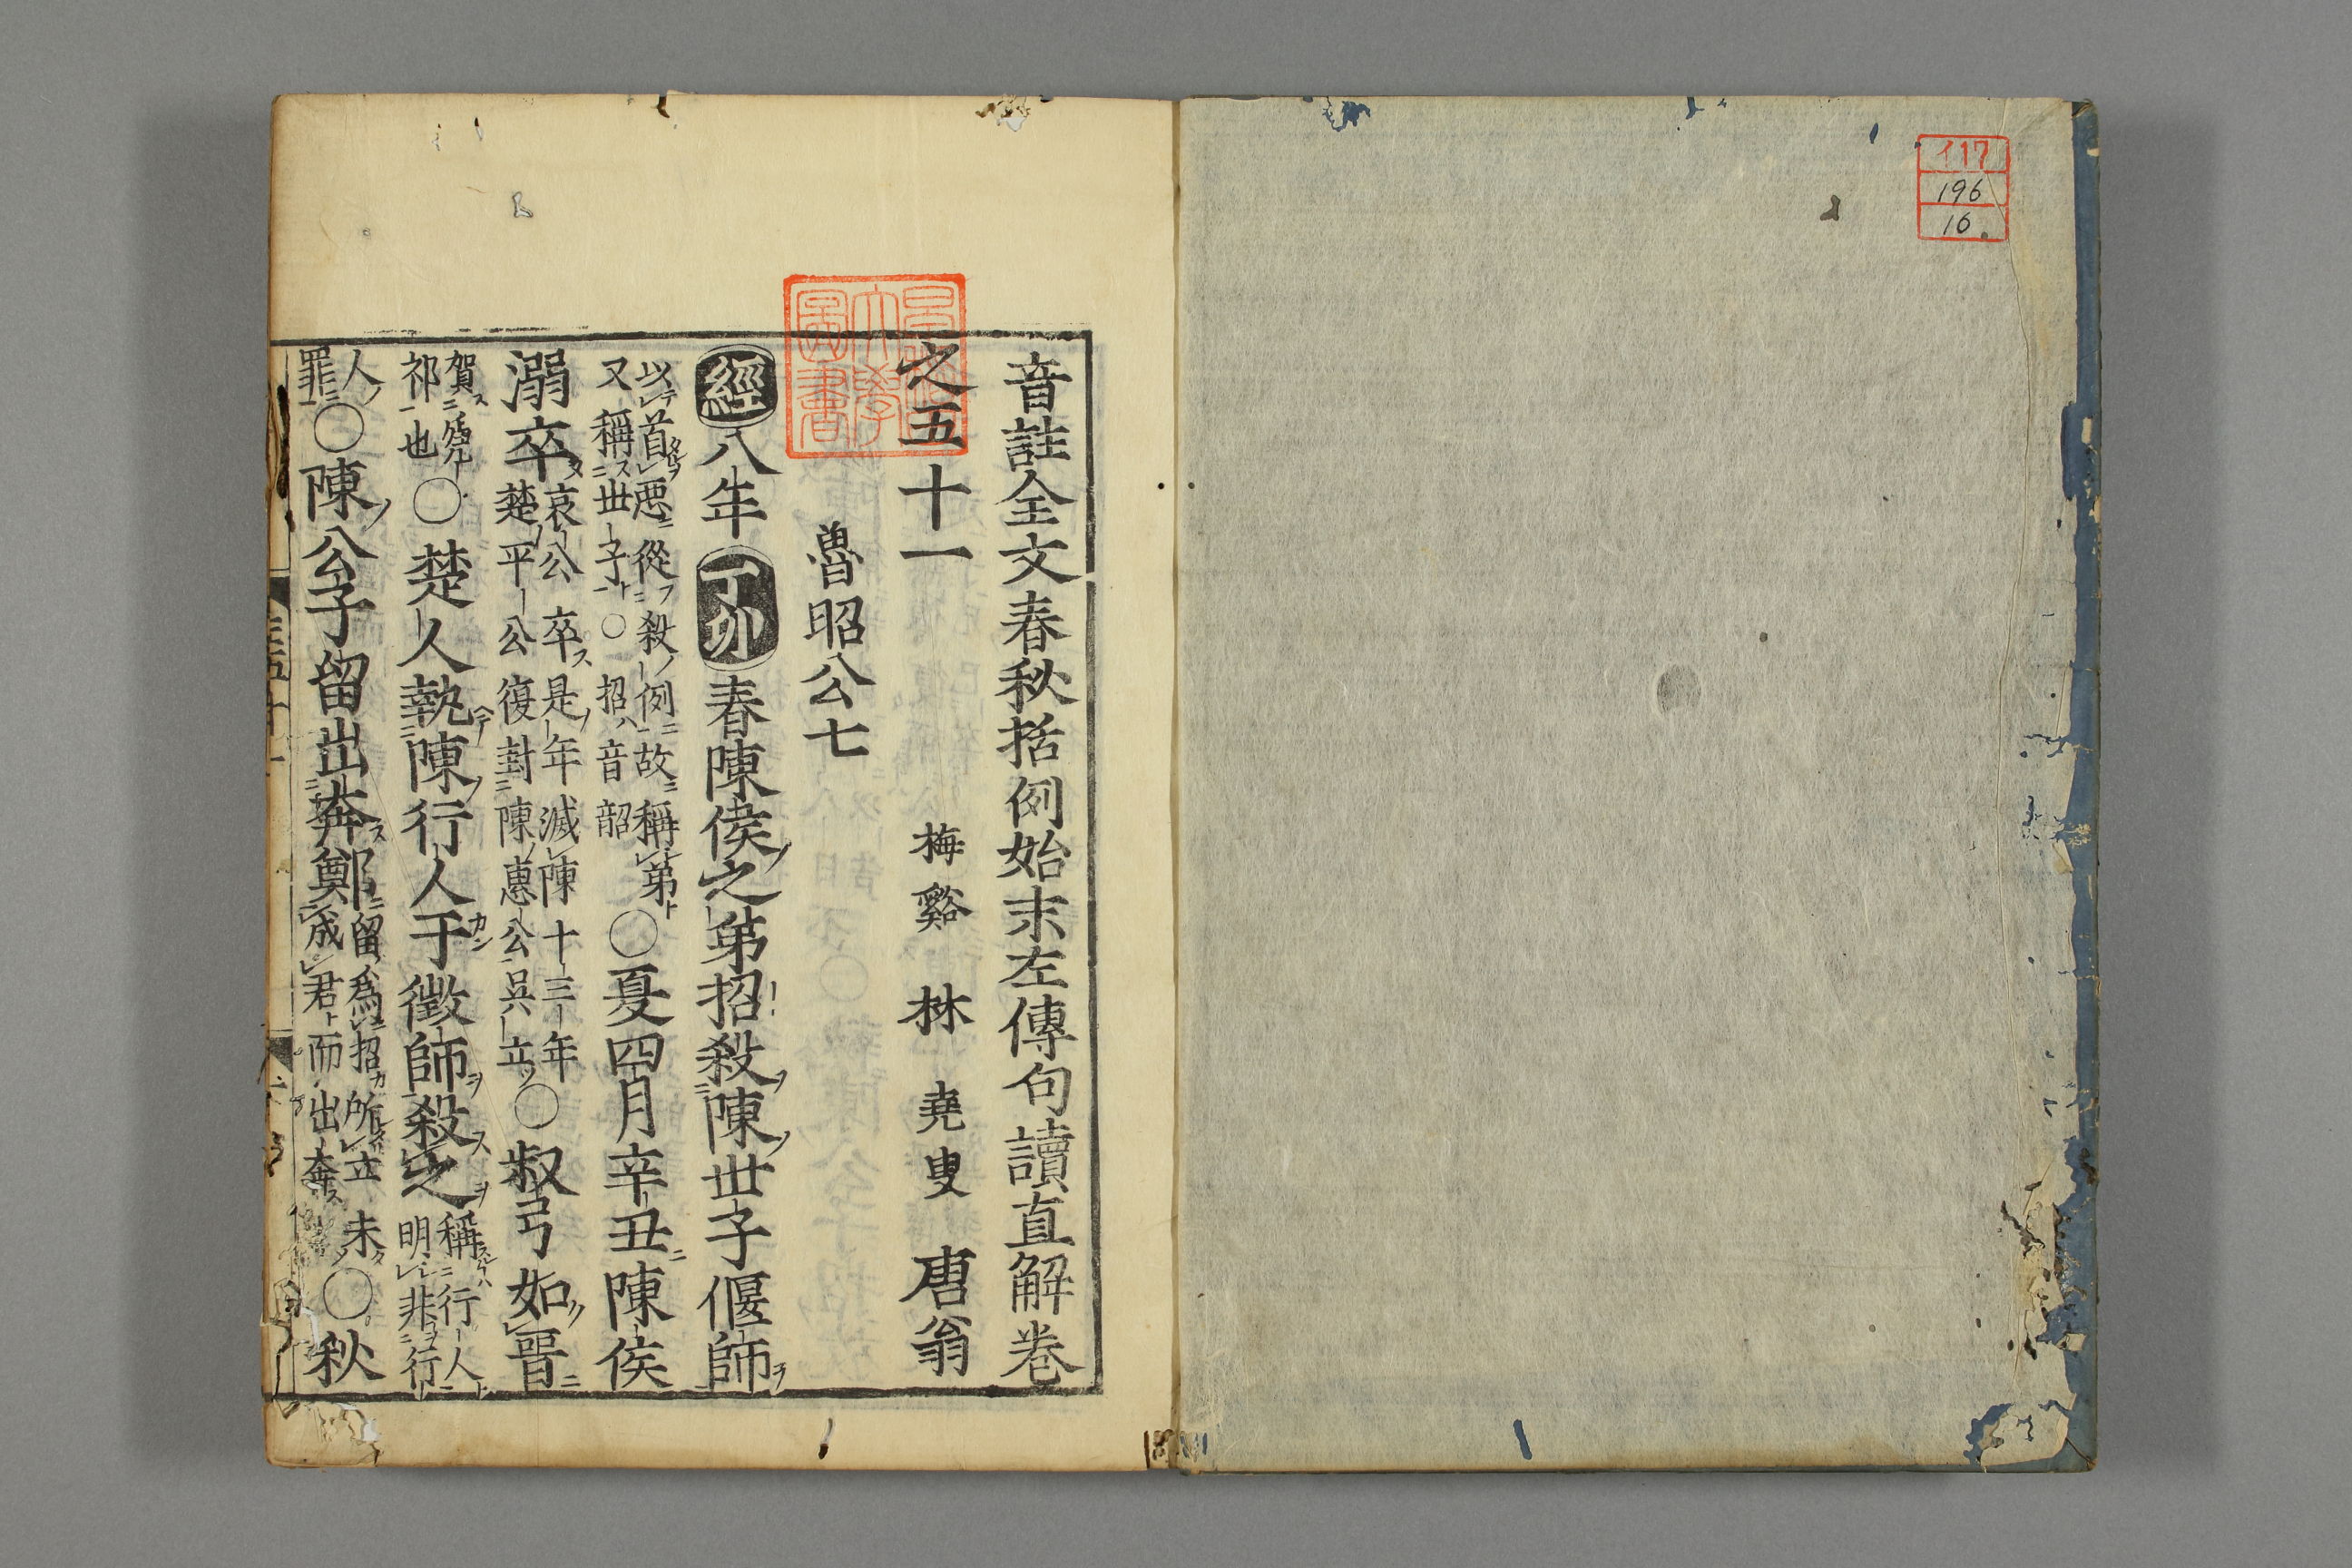 イ17
196
16
音註全文春秋括例始末左傳句讀直解卷
之五十一 梅谿 林 堯叟 唐翁
早稻田大學圖書
魯昭公七
經八年丁卯春陳侯之弟招殺陳世子偃師
以首惡從殺例故稱弟
又稱世子○招音韶
○夏四月辛丑陳侯
溺卒
哀公卒是年滅陳十三年
楚平公復封陳惠公吳立
○叔弓如晉
賀虒
祁也
○楚人執陳行人干徵師殺之
稱行人
明非行
人
罪
○陳公子留出奔鄭
留爲招所立未
成君而出奔
○秋
五十一